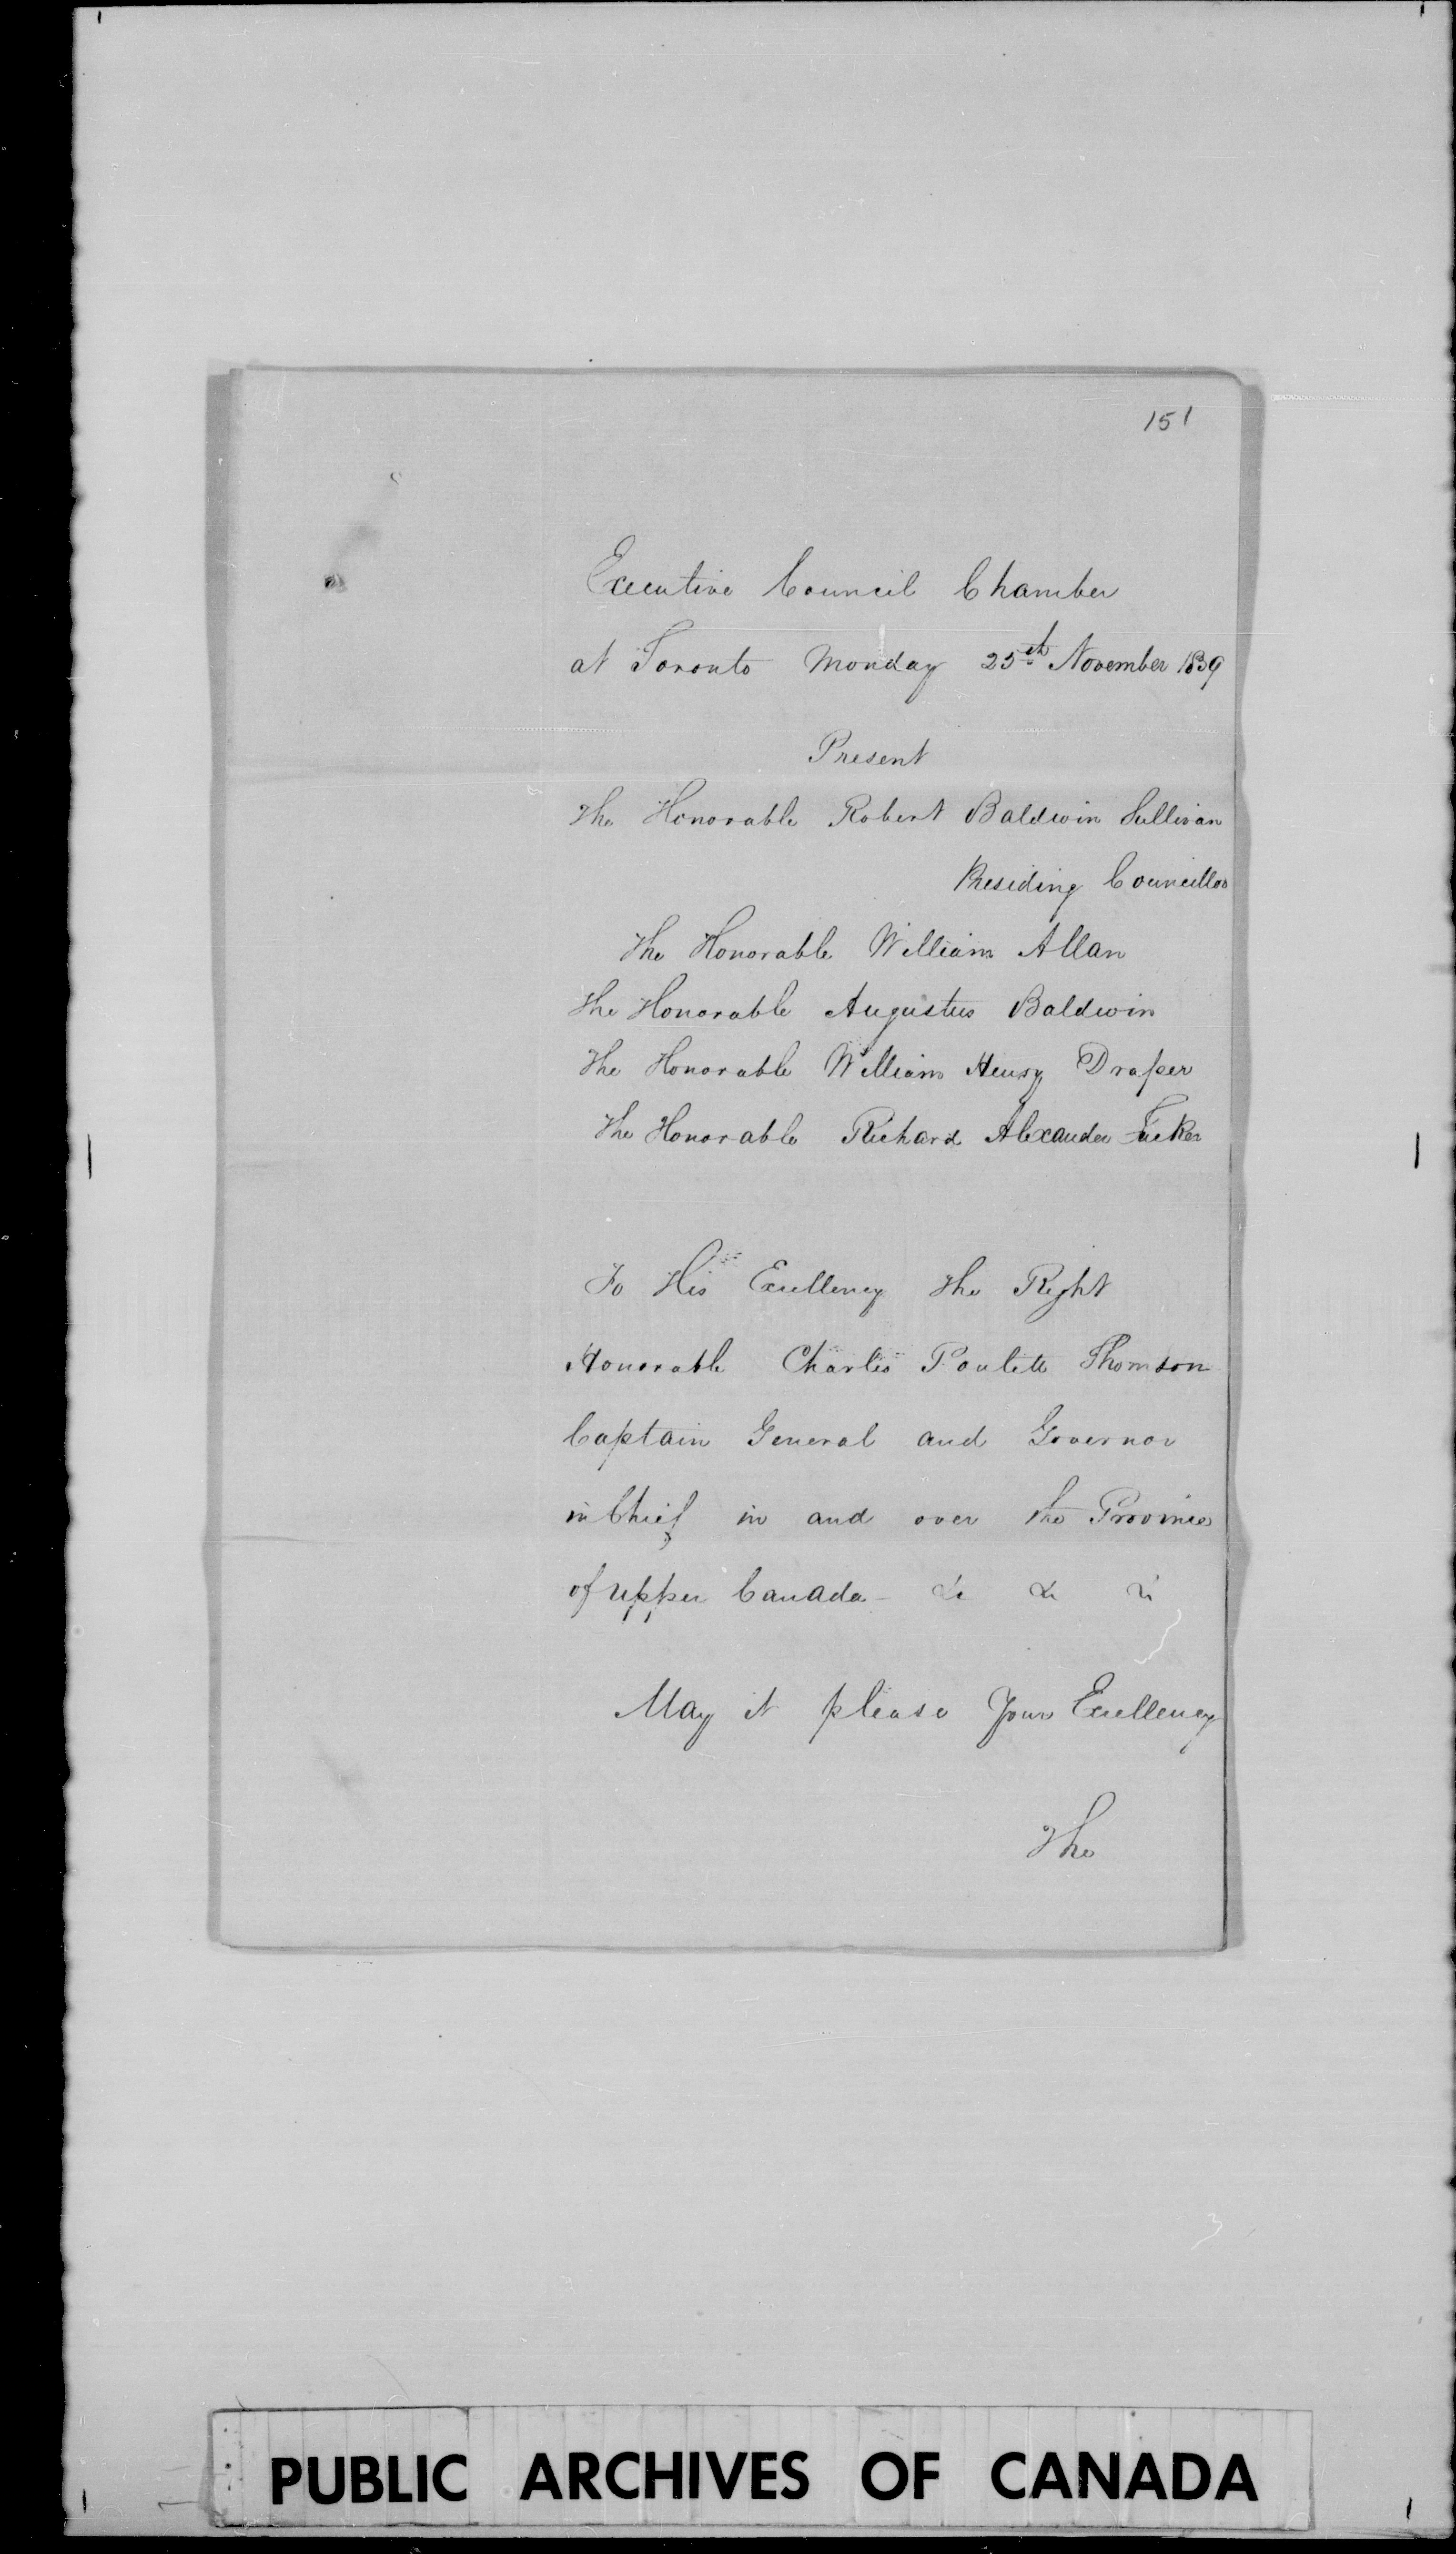 151
Executive Council Chamber
at Toronto Monday 25th November 1839
Present
The Honorable Robert Baldwin Sullivan
Presiding Councillor
The Honorable William Allan
The Honorable Augustus Baldwin
The Honorable William Henry Draper
The Honorable Richard Alexander Tucker
To His Excellency The Right
Honorable Charles Poulett Thomson
Captain General and Governor
in Chief in and over the Province
of Upper Canada - &c &c &c
May it please Your Excellency
The
PUBLIC ARCHIVES OF CANADA